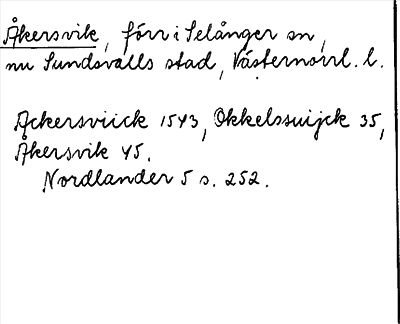 Åkersvik, förr i Selånger sn,
nu Sundsvalls stad, Västernorrl. l.
Ackersviick 1543, Okkelssuijck 35,
Åkersvik 45.
Nordlander 5 s. 252.